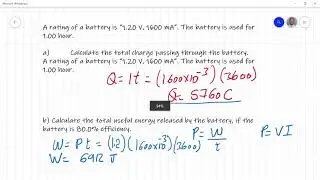 A rating of a battery is "1.20 V, 1600 mA". The battery is used for
1.00 hour.
a) Calculate the total charge passing through the battery.
A rating of a battery is "1.20 V, 1600 mA". The battery is used for
1.00 hour.
Q = It = (1600×10⁻³)(3600)
Q = 5760 C
b) Calculate the total useful energy released by the battery, if the
battery is 80.0% efficiency.
P = W/t P = VI
W = Pt = (1.2)(1600×10⁻³)(3600)
W = 6912 J